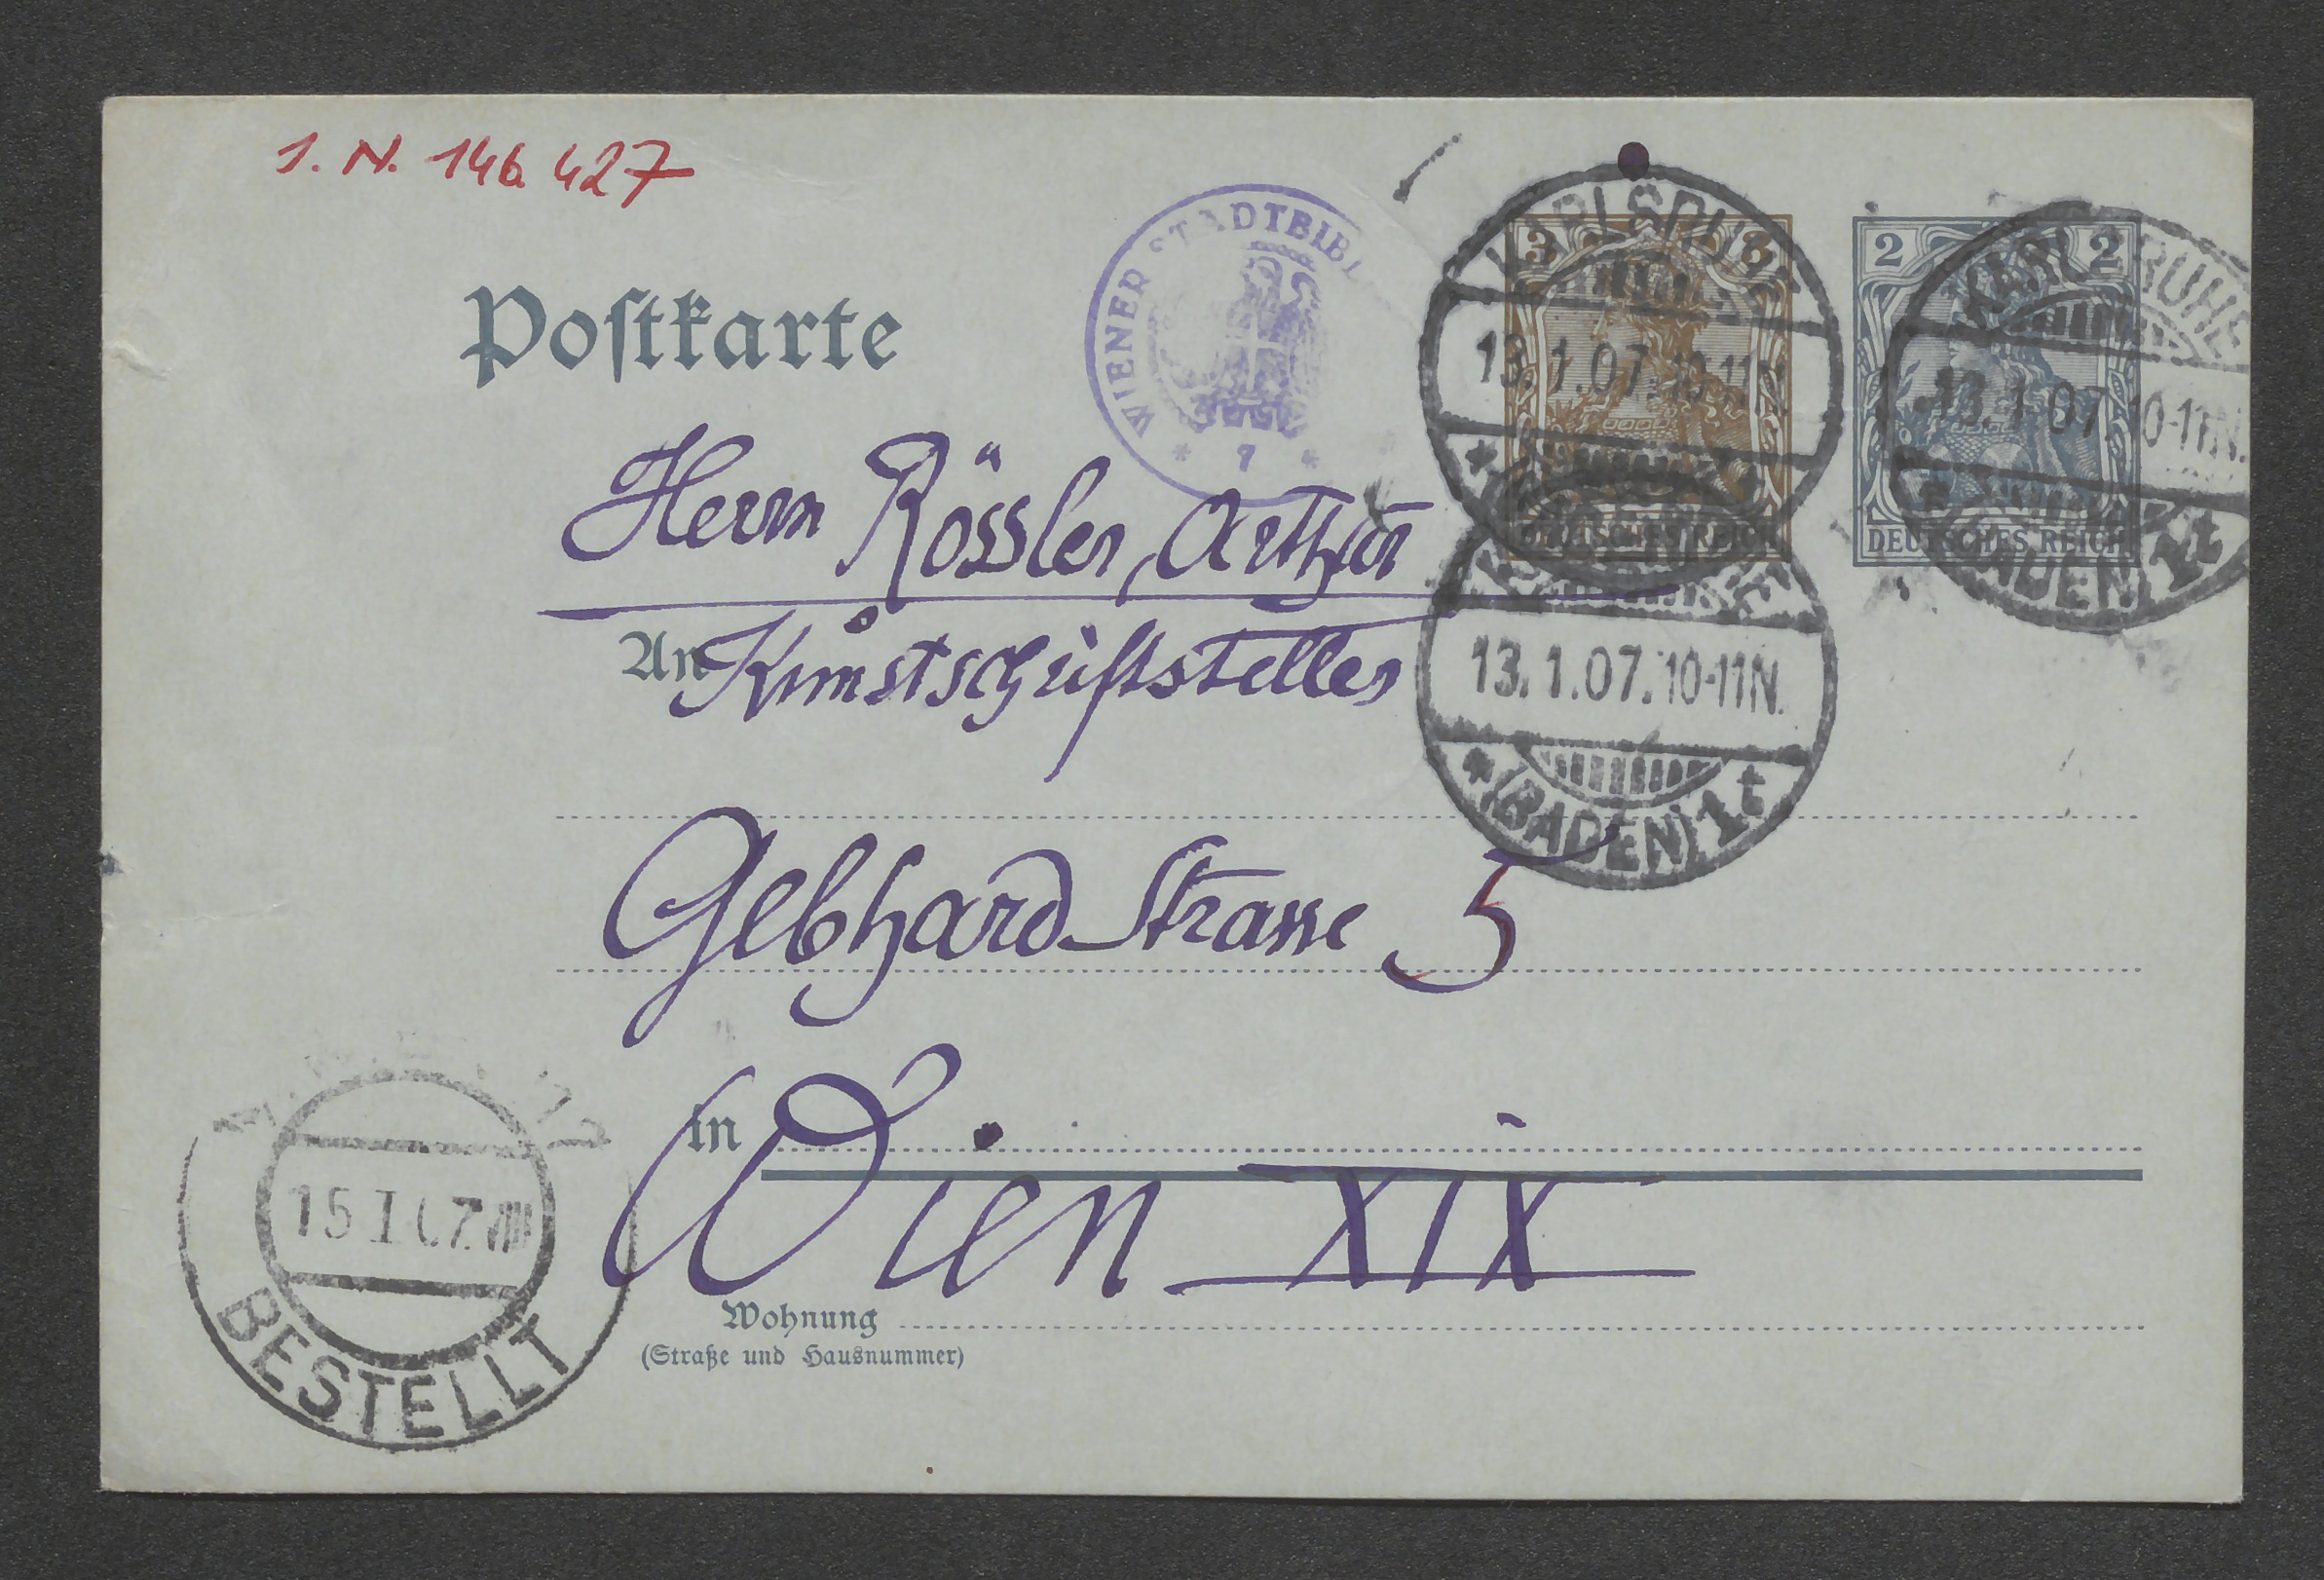 1. N. 146.427
WIENER STADTBIBL
* 9 *
KARLSRUHE
13.1.07.10-11N.
3 3
DEUTSCHES REICH
KARLSRUHE
13.1.07.10-11N.
(BADEN) 1t
2 2
DEUTSCHES REICH
Postkarte
Herrn Rössler, Arthur
An Kunstschriftsteller
KARLSRUHE
13.1.07.10-11N.
* (BADEN) 1t
Gebhard Strasse 5
in Wien XIX
Wohnung
(Straße und Hausnummer)
15 I 07
BESTELLT